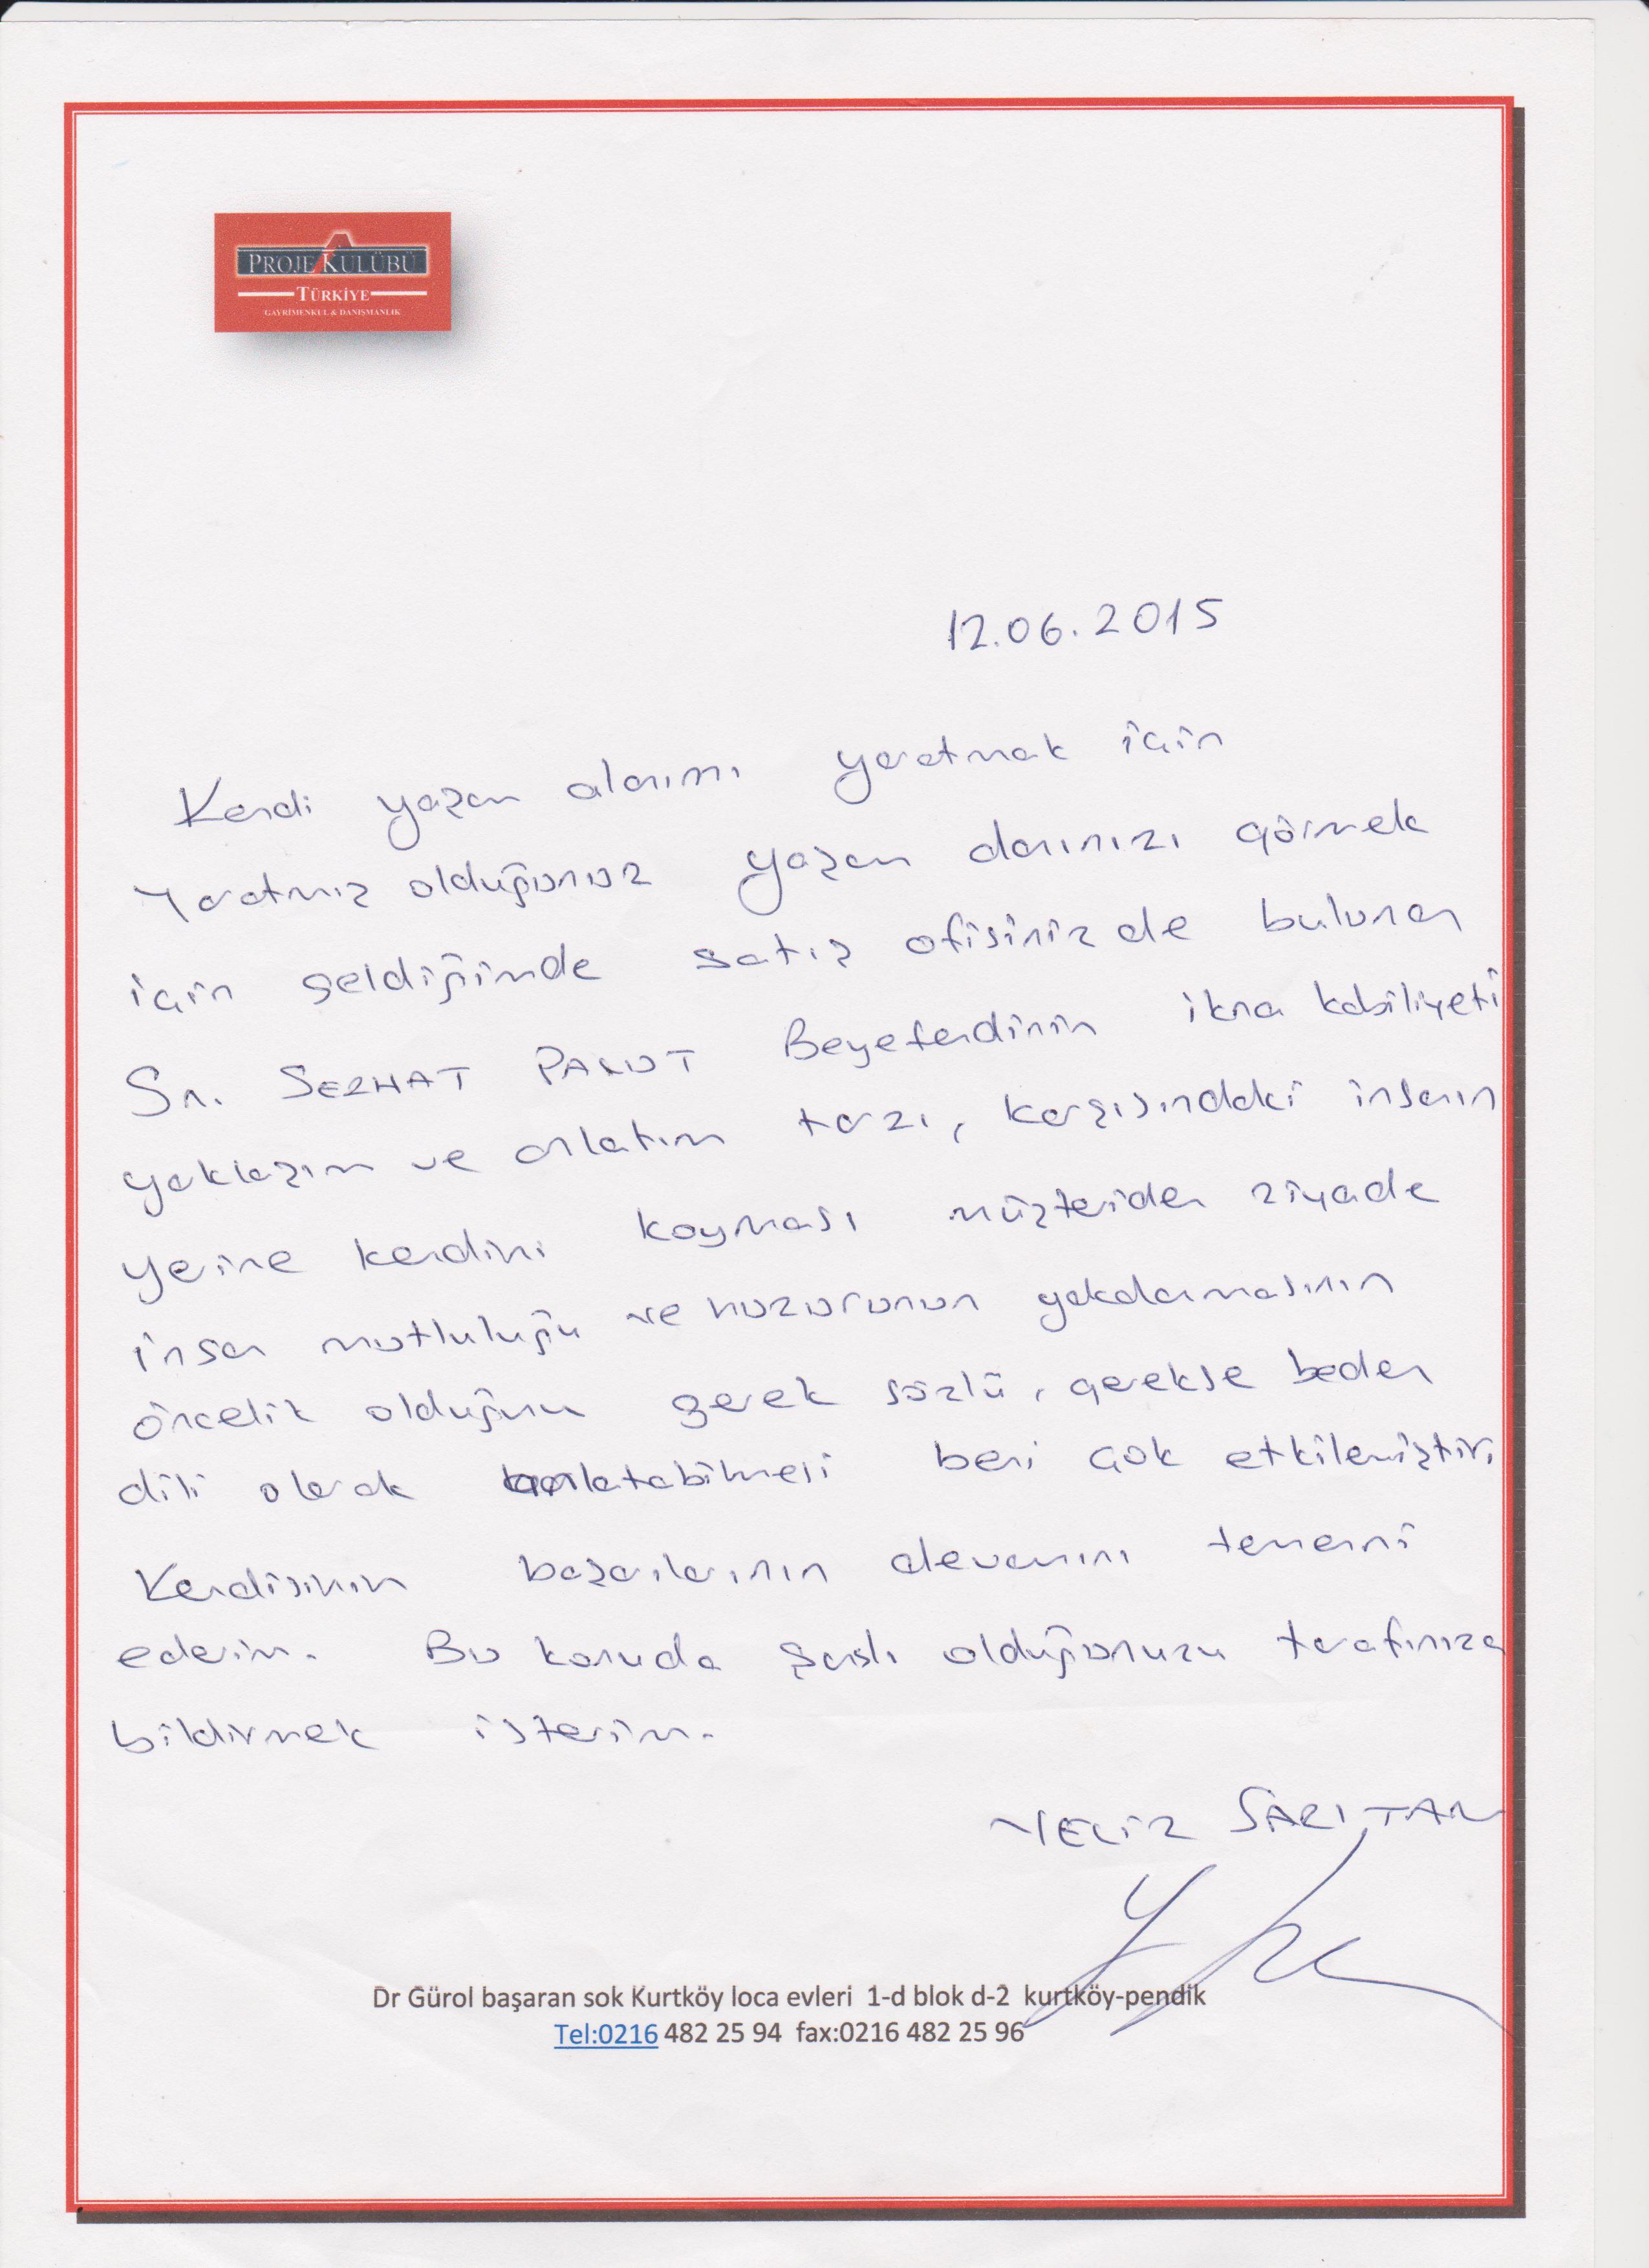 PROJE KULÜBÜ
TÜRKİYE
GAYRİMENKUL & DANIŞMANLIK
12.06.2015
Kendi yaşam alanımı yaratmak için
Yaratmış olduğunuz yaşam alanınızı görmek
için geldiğimde satış ofisinizde bulunan
Sn. SERHAT Beyefendinin ikna kabiliyeti
yaklaşım ve anlatım tarzı, karşısındaki insanın
yerine kendini koyması müşteriden ziyade
insan mutluluğu ve huzurunun yakalanmasının
öncelik olduğunu gerek sözlü, gerekse beden
dili olarak anlatabilmesi beni çok etkilemiştir.
Kendisinin başarılarının devamını temenni
ederim. Bu konuda şanslı olduğunuzu tarafınıza
bildirmek isterim.
YELİZ SARITAN
Dr Gürol başaran sok Kurtköy loca evleri 1-d blok d-2 kurtköy-pendik
Tel:0216 482 25 94 fax:0216 482 25 96